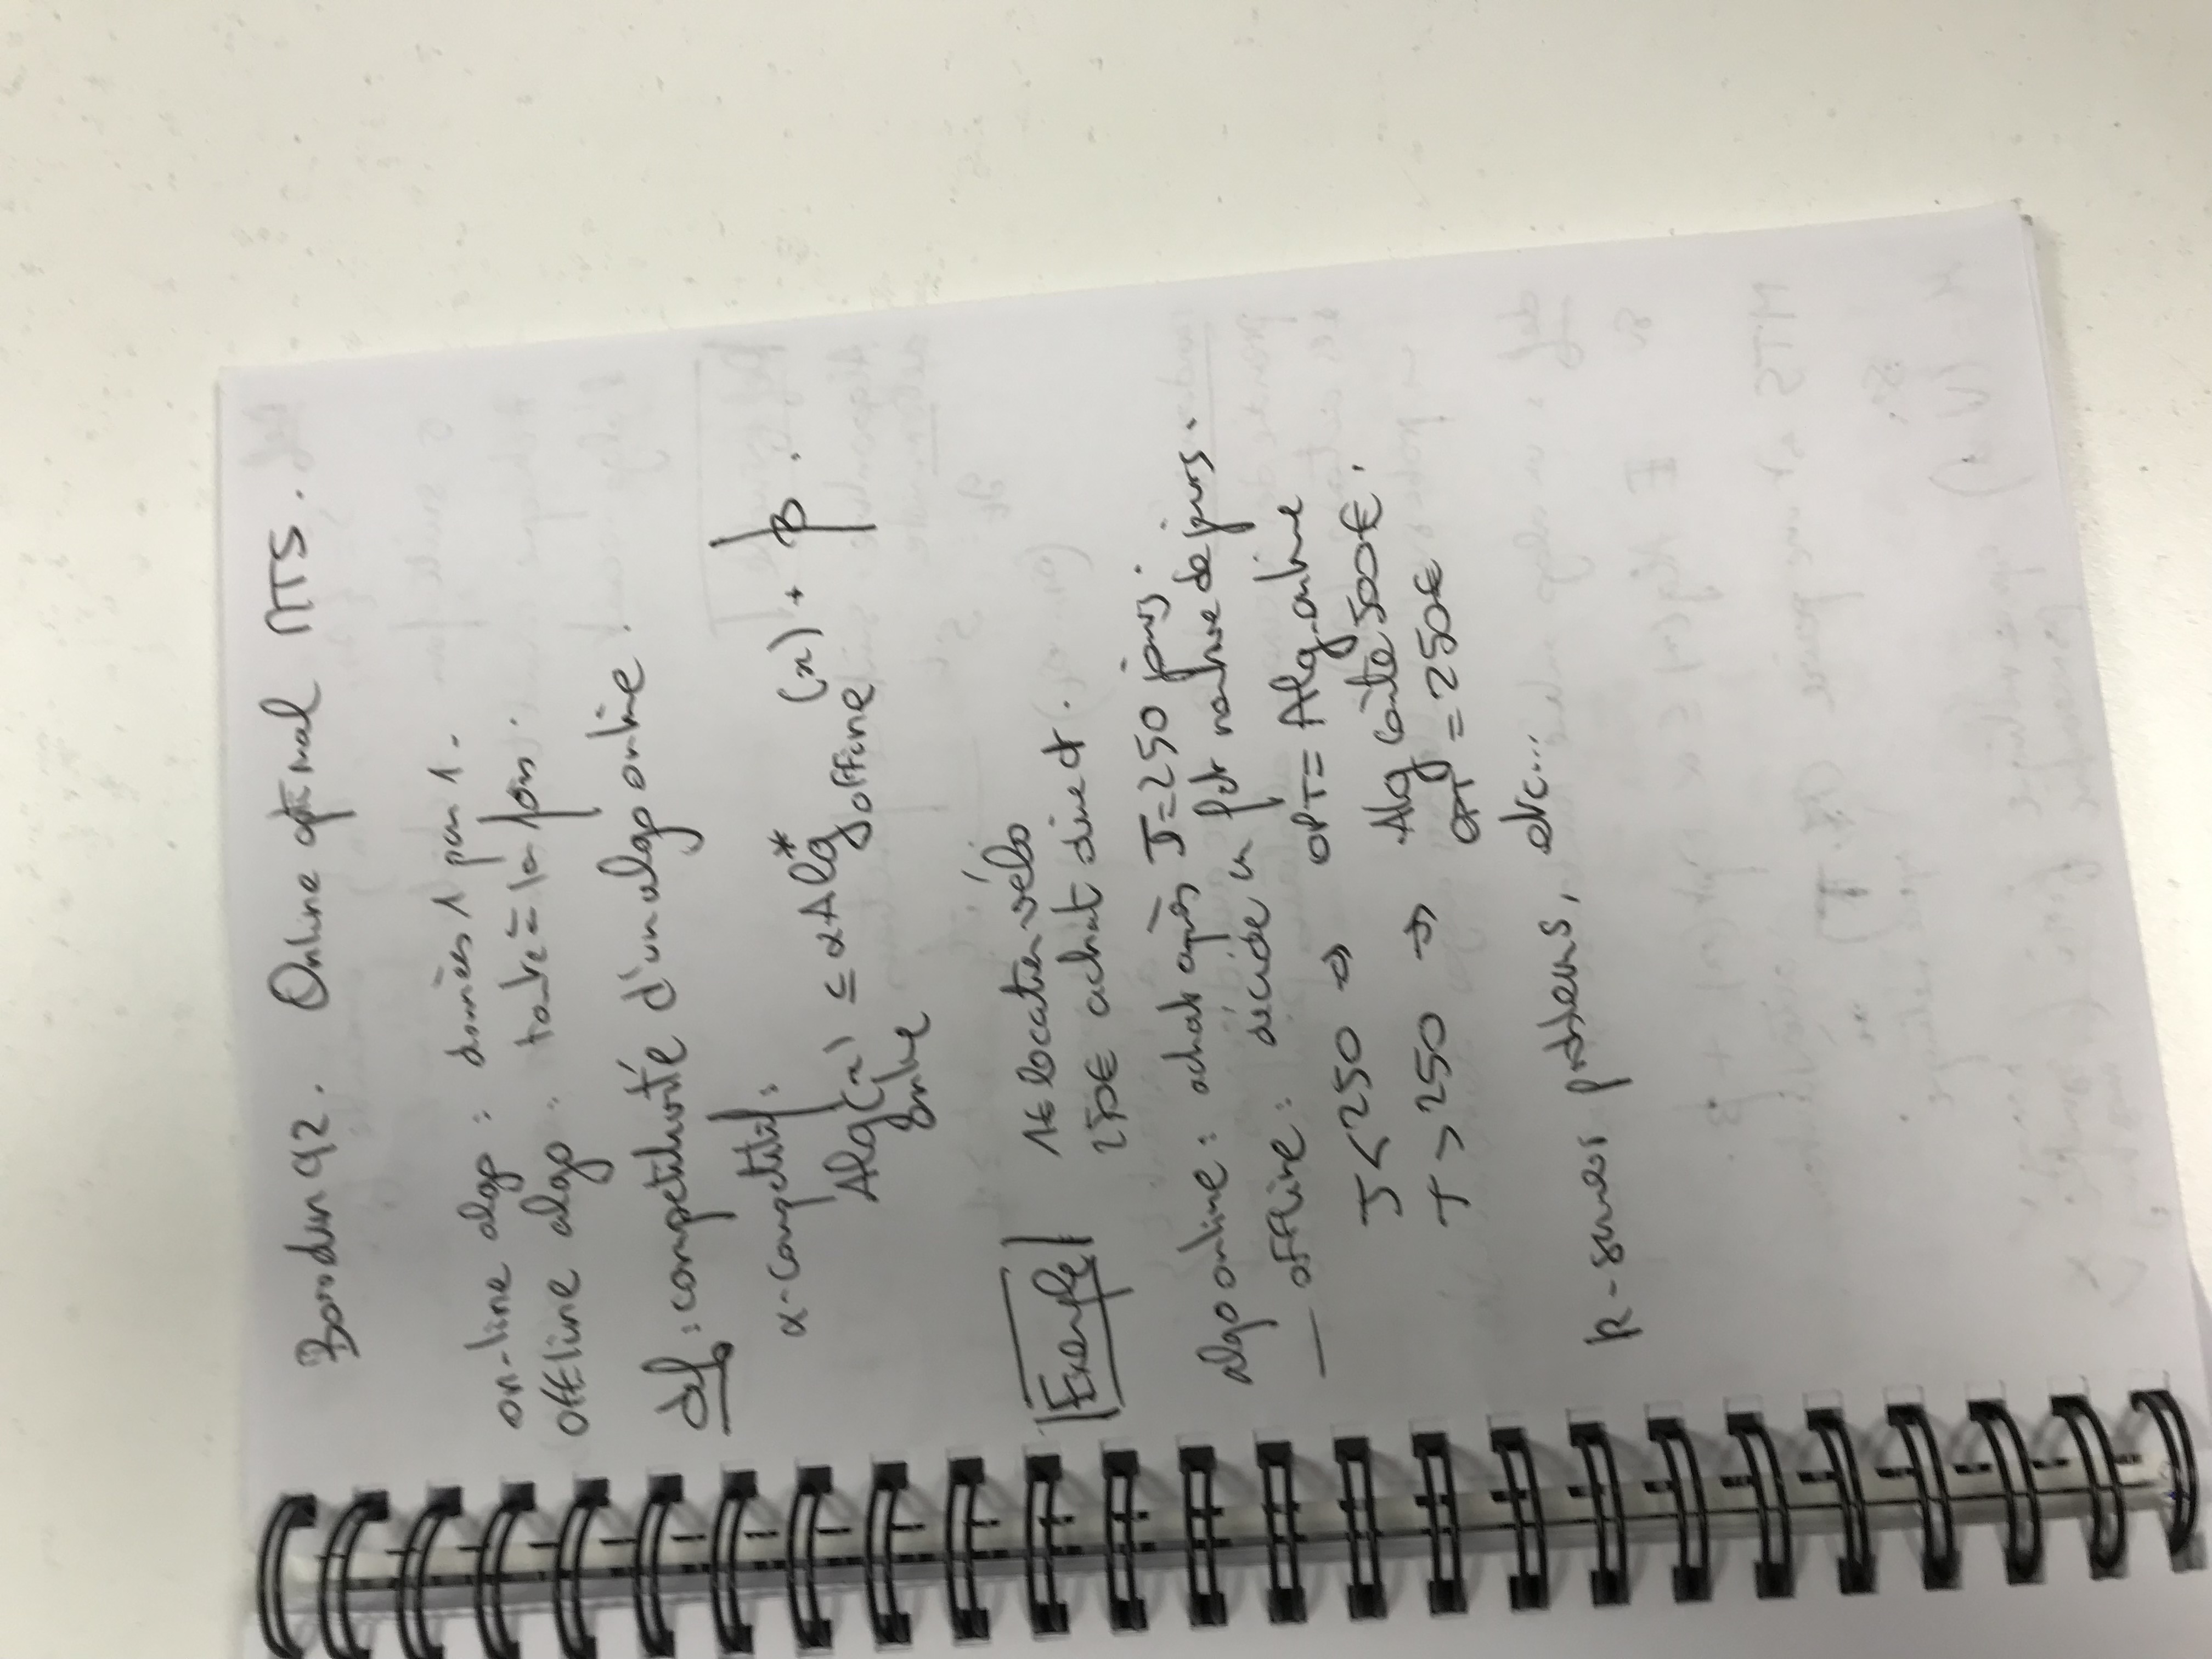 Borodin 92. Online optimal MTS.
on-line algo : données 1 par 1.
offline algo : toute à la fois.
def : compétitivité d'un algo online.
α-compétitif :
Alg(x) ≤ α Alg* offline (x) + β.
online
Exemple 1€ location vélo
250€ achat direct.
algo online : achat après J=250 jours.
— offline : décide en fct nombre de jours.
J < 250 ⇒ OPT = Alg online
J > 250 ⇒ Alg coûte 500€.
OPT = 250€
k-server problems, etc...